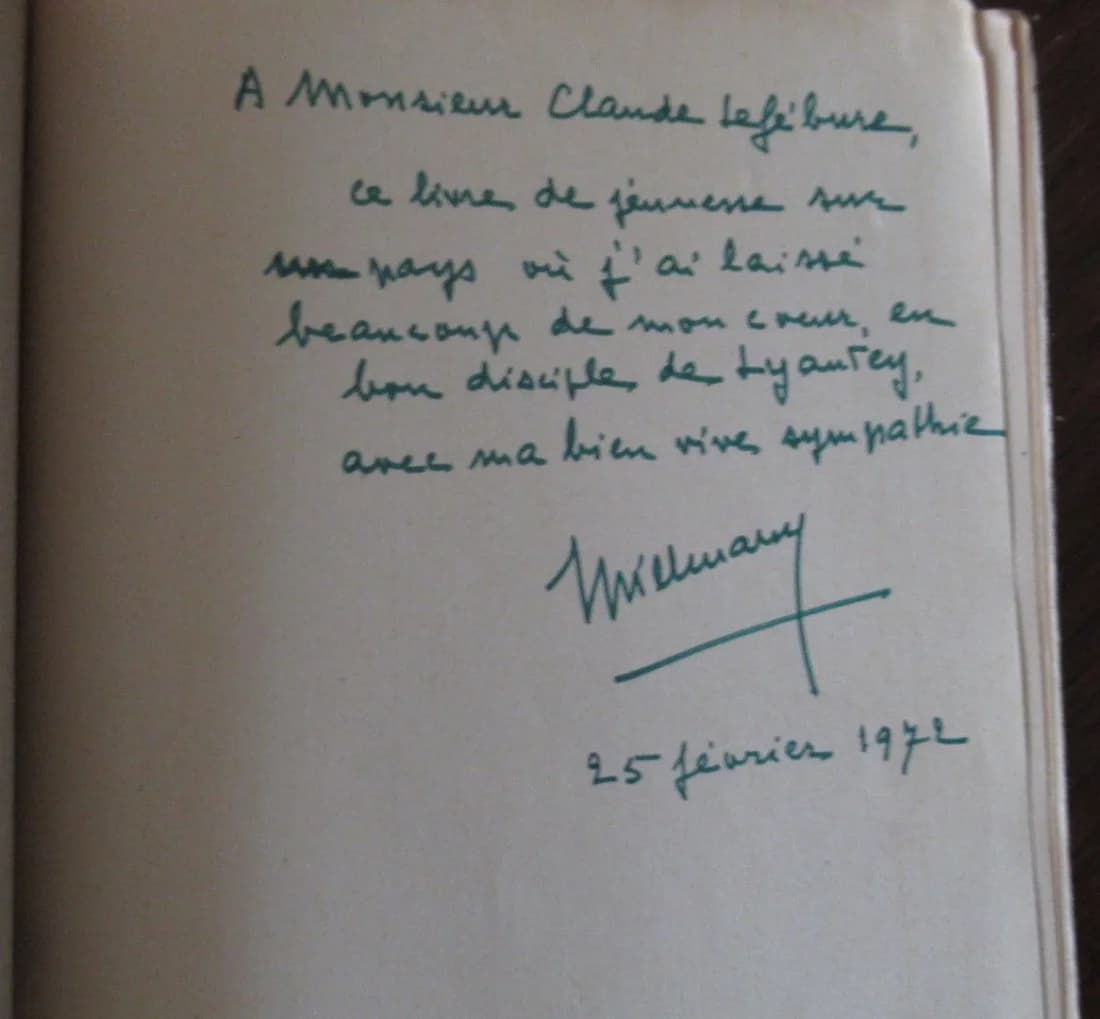 A Monsieur Claude Lefébure,
ce livre de jeunesse sur
un pays où j'ai laissé
beaucoup de mon coeur, en
bon disciple de Lyautey,
avec ma bien vive sympathie
25 février 1972